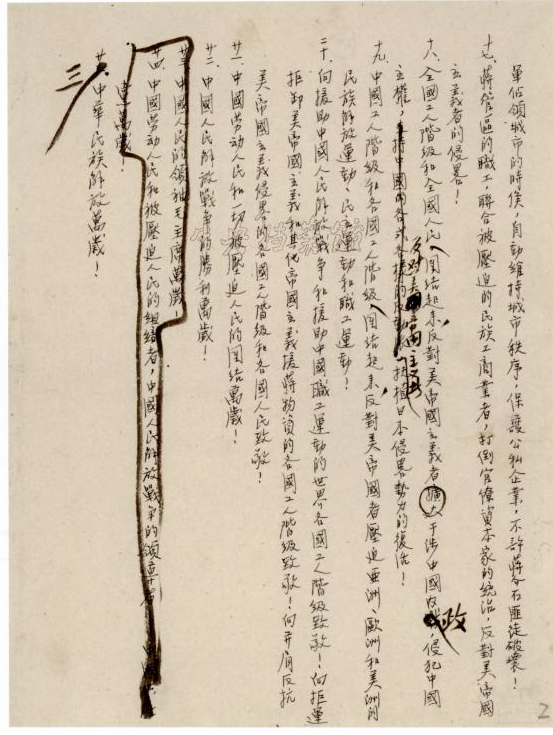 軍佔領城市的時候，自動維持城市秩序，保護公私企業，不許蔣介石匪徒破壞！
十七、蔣管區的職工，聯合被壓迫的民族工商業者，打倒官僚資本家的統治，反對美帝國
主義者的侵畧！
十八、全國工人階級和全國人民，團結起來，反對美帝國主義者擴大干涉中國內政，侵犯中國
主權，反對美帝國主義扶植日本侵畧勢力的復活！
十九、中國工人階級和各國工人階級團結起來，反對美帝國者壓迫亞洲、歐洲和美洲的
民族解放運動、民主運動和職工運動！
二十、向援助中國人民解放戰爭和援助中國職工運動的世界各國工人階級致敬！向拒運
拒卸美帝國主義和其他帝國主義援蔣物資的各國工人階級致敬！向并肩反抗
美帝國主義侵畧的各國工人階級和各國人民致敬！
廿一、中國勞動人民和一切被壓迫人民的團結萬歲！
廿二、中國人民解放戰爭的勝利萬歲！
廿三、中國人民的領袖毛主席萬歲！
廿四、中國勞動人民和被壓迫人民的組織者，中國人民解放戰爭的領導者
萬歲！
三
中華民族解放萬歲！
2